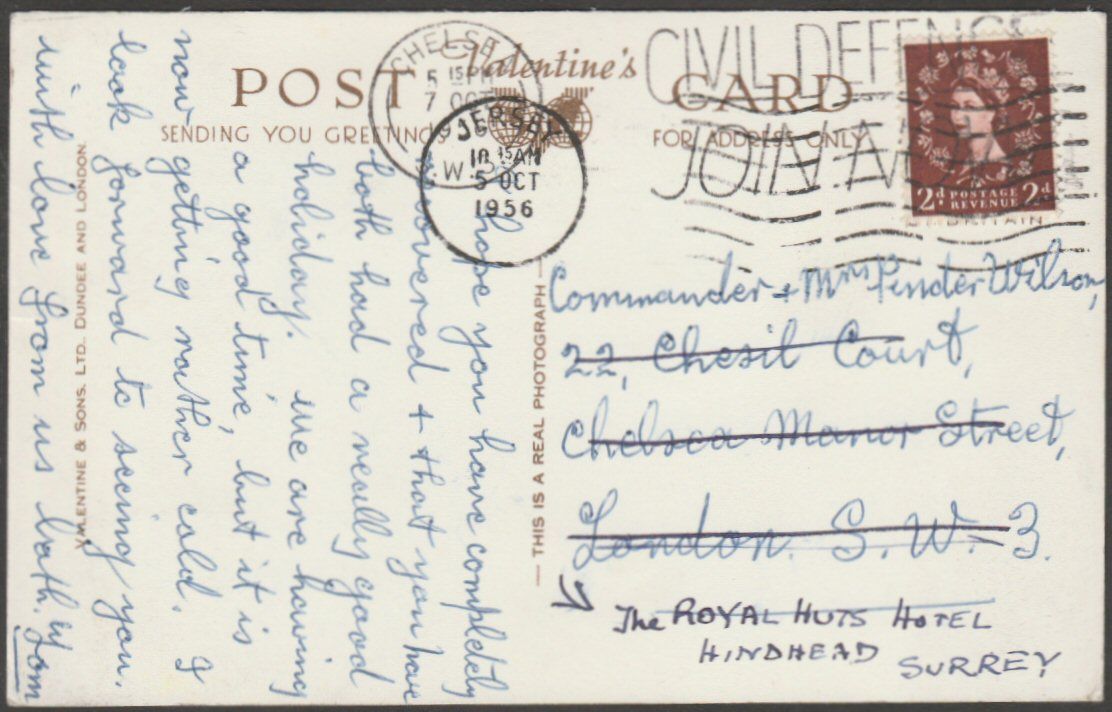 POST CARD
Valentine's
SENDING YOU GREETINGS
FOR ADDRESS ONLY
CHELSEA
5 15 PM
7 OCT
S.W.
JERSEY
10 15 AM
5 OCT
1956
CIVIL DEFENCE
JOIN NOW
2d POSTAGE REVENUE 2d
I hope you have completely
recovered + that you have
both had a really good
holiday. We are having
a good time, but it is
now getting rather cold. I
look forward to seeing you.
with love from us both.
VALENTINE & SONS, LTD., DUNDEE AND LONDON.
— THIS IS A REAL PHOTOGRAPH —
Commander + Mrs Pender Wilson,
22, Chesil Court,
Chelsea Manor Street,
London. S. W. 3.
The ROYAL HUTS HOTEL
HINDHEAD
SURREY